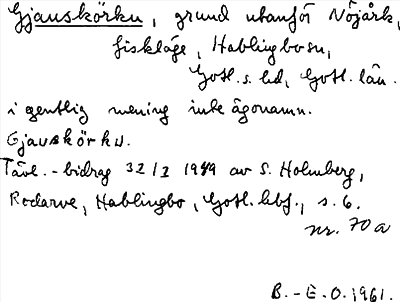 Gjauskörku, grund utanför Nöjårk,
fiskläge, Hablingbo sn,
Gotl. s. hd, Gotl. län.
i egentlig mening inte ägonamn.
Gjauskörku.
Tävl.-bidrag 32/I 1949 av S. Holmberg,
Rodarve, Hablingbo, Gotl. hbf., s. 6.
nr. 70 a
B.-E.O. 1961.